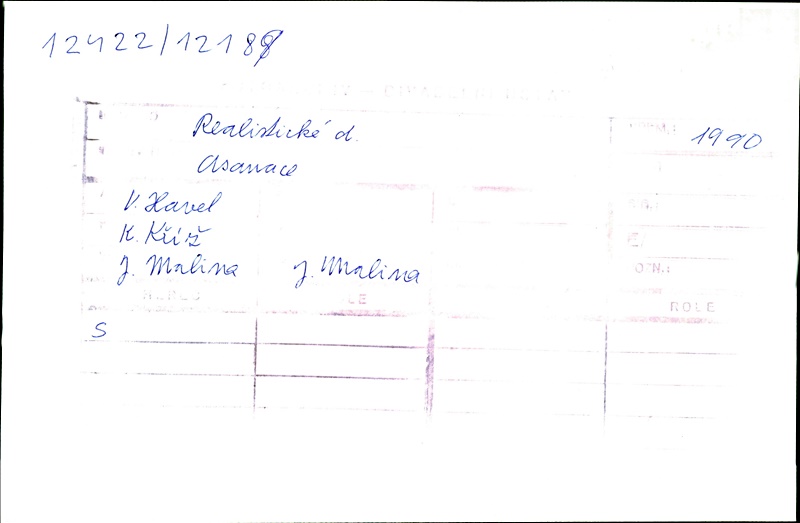 12422/1218
Realistické d.
1990
Asanace
V. Havel
K. Kříž
J. Malina J. Malina
OTN.:
ROLE
S